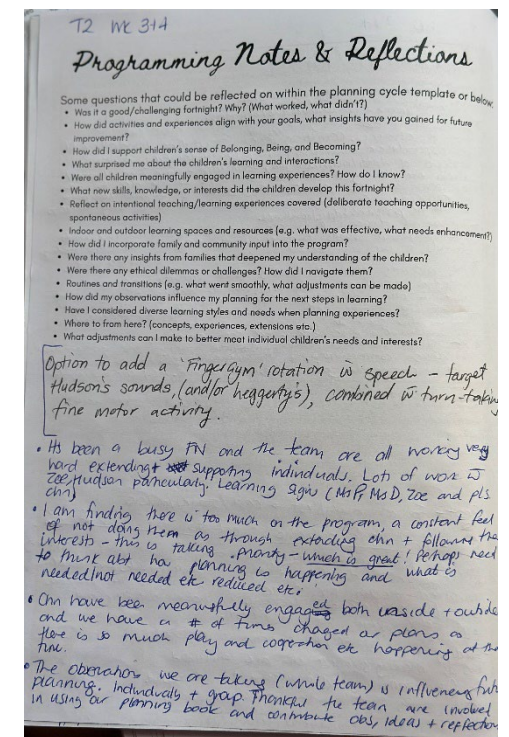 T2 WK 3+4
Programming Notes & Reflections
Some questions that could be reflected on within the planning cycle template or below.
• Was it a good/challenging fortnight? Why? (What worked, what didn't?)
• How did activities and experiences align with your goals, what insights have you gained for future
improvement?
• How did I support children's sense of Belonging, Being, and Becoming?
• What surprised me about the children's learning and interactions?
• Were all children meaningfully engaged in learning experiences? How do I know?
• What new skills, knowledge, or interests did the children develop this fortnight?
• Reflect on intentional teaching/learning experiences covered (deliberate teaching opportunities,
spontaneous activities)
• Indoor and outdoor learning spaces and resources (e.g. what was effective, what needs enhancement?)
• How did I incorporate family and community input into the program?
• Were there any insights from families that deepened my understanding of the children?
• Were there any ethical dilemmas or challenges? How did I navigate them?
• Routines and transitions (e.g. what went smoothly, what adjustments can be made)
• How did my observations influence my planning for the next steps in learning?
• Have I considered diverse learning styles and needs when planning experiences?
• Where to from here? (concepts, experiences, extensions etc.)
• What adjustments can I make to better meet individual children's needs and interests?
Option to add a 'Fingergym' rotation w speech - target
Hudson's sounds, (and/or heggerty's), combined w turn-taking
fine motor activity.
• Its been a busy FN and the team are all working very
hard extending + supporting individuals. Lots of work w
Zoe, Hudson particularly. Learning signs (Ms P, Ms D, Zoe and pls
chn)
• I am finding there is too much on the program, a constant feel
of not doing them as through extending chn + following the
interests - this is taking priority - which is great! Perhaps need
to think abt how planning is happening and what is
needed/not needed etc reduced etc.
• Chn have been meaningfully engaged both inside + outside
and we have a # of times changed our plans as
there is so much play and cooperation etc happening at the
time.
• The observations we are taking (whole team) is influencing future
planning. Individually + group. Thankful the team are involved
in using our planning book and contribute obs, ideas + reflection